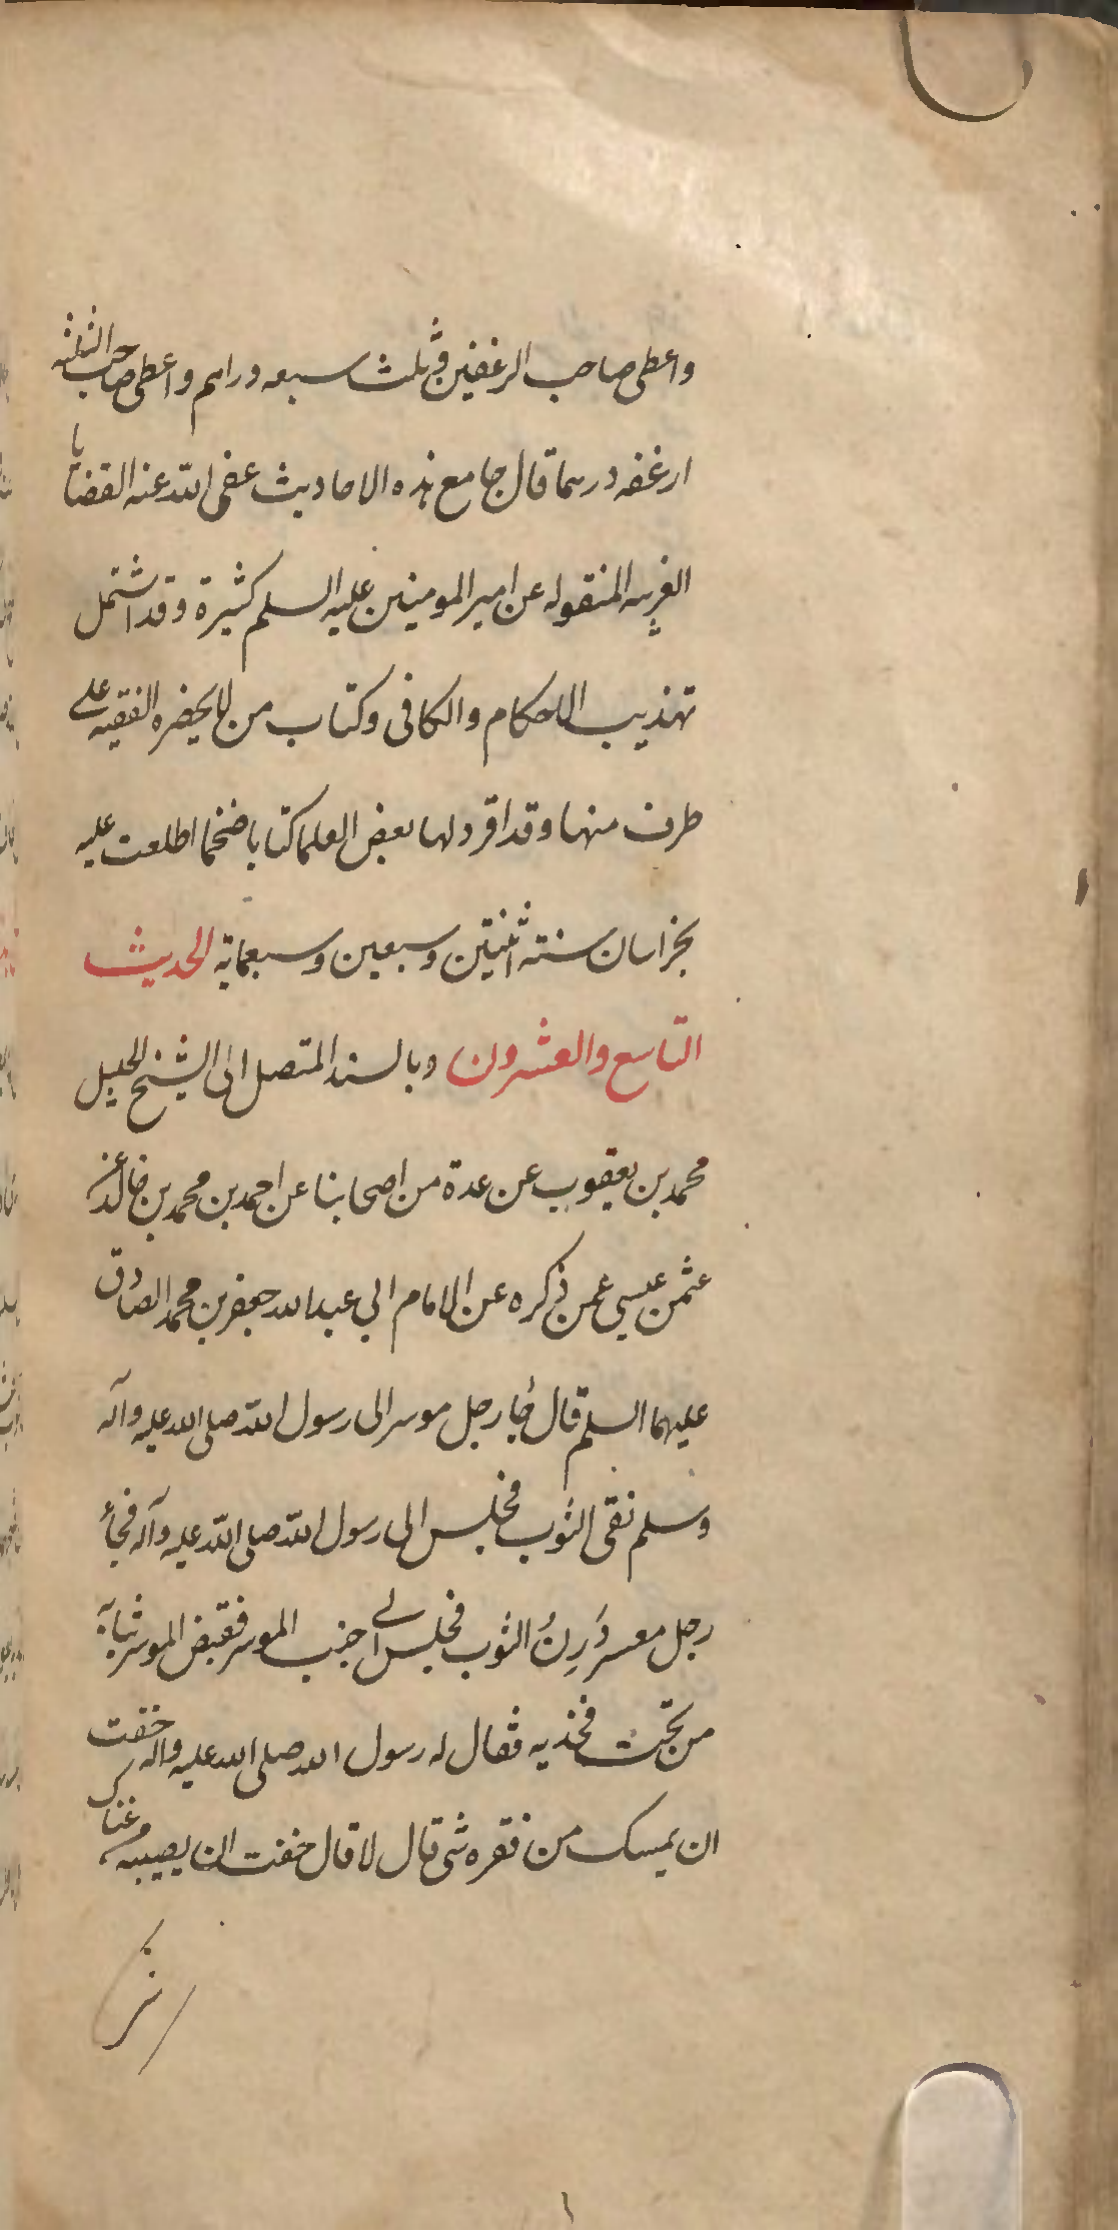 واعطى صاحب الرغفين وثلث سبعه دراهم واعطى صاحب الثلثه
ارغفه درهما قال جامع هذه الاحاديث عفى الله عنه القضايا
الغريبه المنقوله عن امير المومنين عليه السلم كثيرة وقد اشتمل
تهذيب الاحكام والكافى وكتاب من لا يحضره الفقيه على
طرف منها وقد افرد لها بعض العلما كتابا ضخما اطلعت عليه
بخراسان سنته اثنتين وسبعين وسبعماية الحديث
التاسع والعشرون وبالسند المتصل الى الشيخ الجليل
محمد بن يعقوب عن عدة من اصحابنا عن احمد بن محمد بن خالد عن
عثمن عيسى عمن ذكره عن الامام ابي عبد الله جعفر بن محمد الصادق
عليهما السلم قال جاء رجل موسر الى رسول الله صلى الله عليه وآله
وسلم نقى الثوب فجلس الى رسول الله صلى الله عليه وآله فجأ
رجل معسر دَرِنُ الثوب فجلس الى جنب الموسر فقبض الموسر ثيابه
من تحت فخذيه فقال له رسول الله صلى الله عليه واله خفت
ان يمسك من فقره شى قال لا قال خفت ان يصيبه من غناك